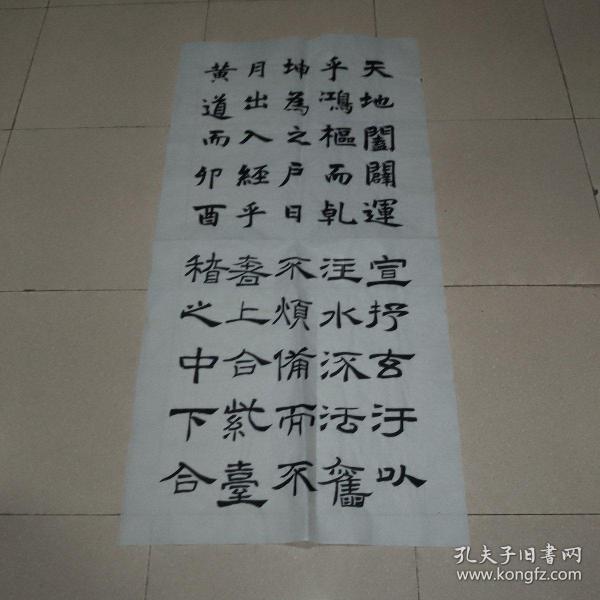 天地闔闢運
乎鴻樞而乾
坤為之户日
月出入經乎
黄道而卯酉
宣抒玄汙以
注水流法舊
不煩備而不
奢上合紫臺
稽之中下合
孔夫子旧书网
www.kongfz.com